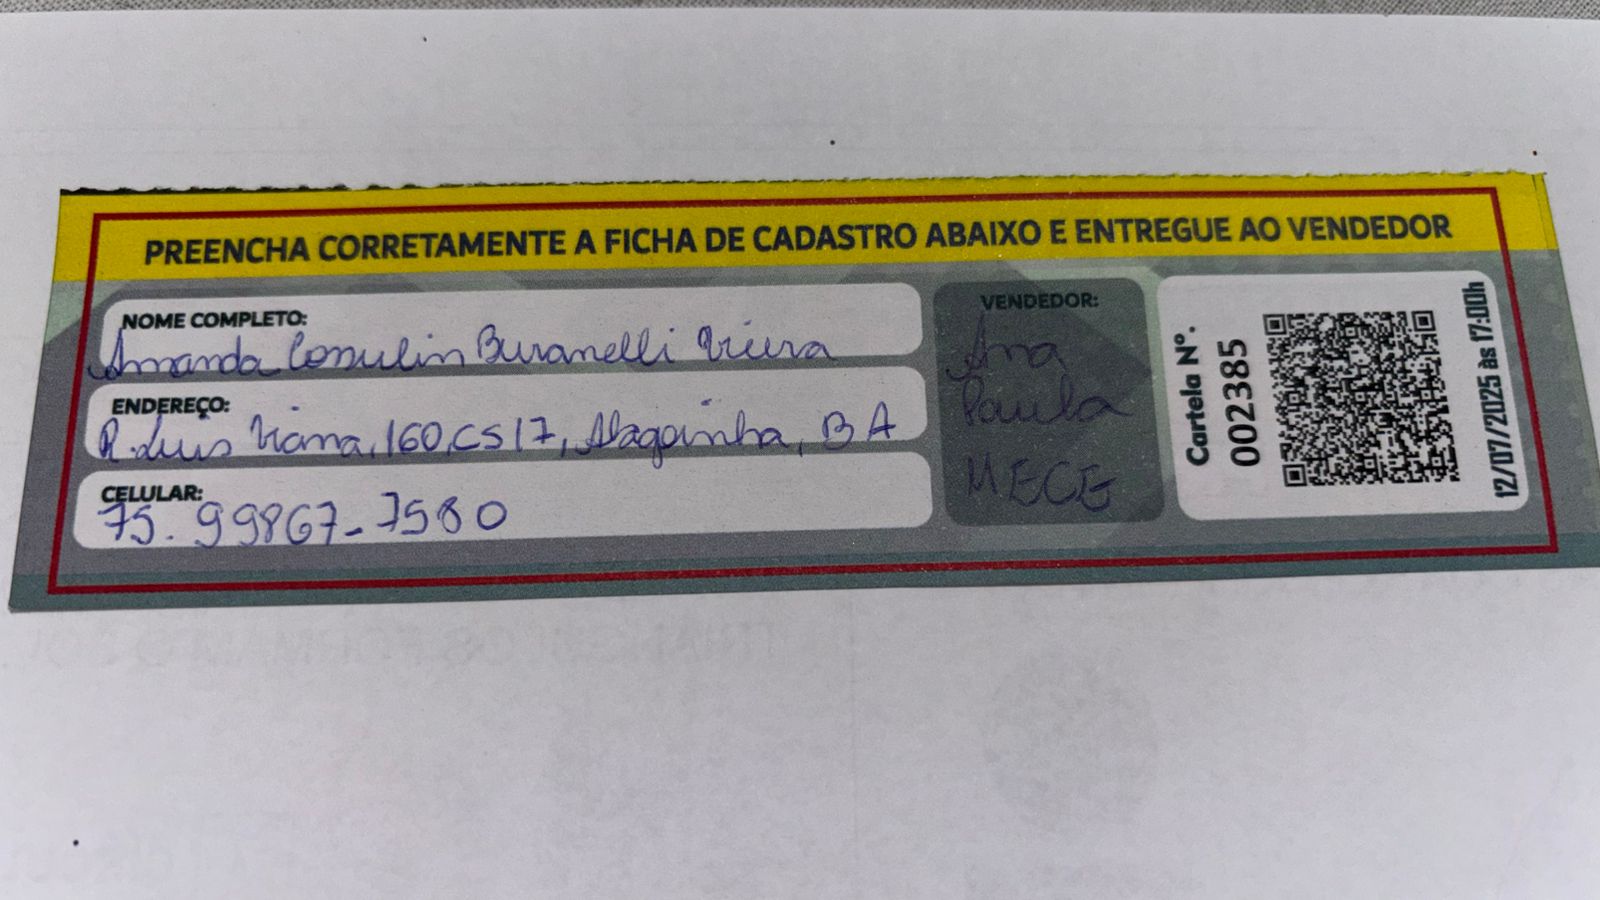 PREENCHA CORRETAMENTE A FICHA DE CADASTRO ABAIXO E ENTREGUE AO VENDEDOR
NOME COMPLETO:
Amanda Consulin Buranelli Vieira
ENDEREÇO:
R. Luis Viana, 160, CS 17, Alagoinha, BA
CELULAR:
75. 99867-7580
VENDEDOR:
Ana
Paula
MECE
Cartela Nº.
002385
12/07/2025 às 17:00h